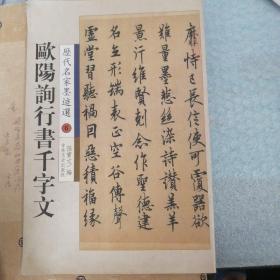 靡恃己長信使可覆器欲
難量墨悲絲染詩讚羔羊
景行維賢剋念作聖德建
名立形端表正空谷傳聲
虛堂習聽禍因惡積福緣
歷代名家墨迹選
6
歐陽詢行書千字文